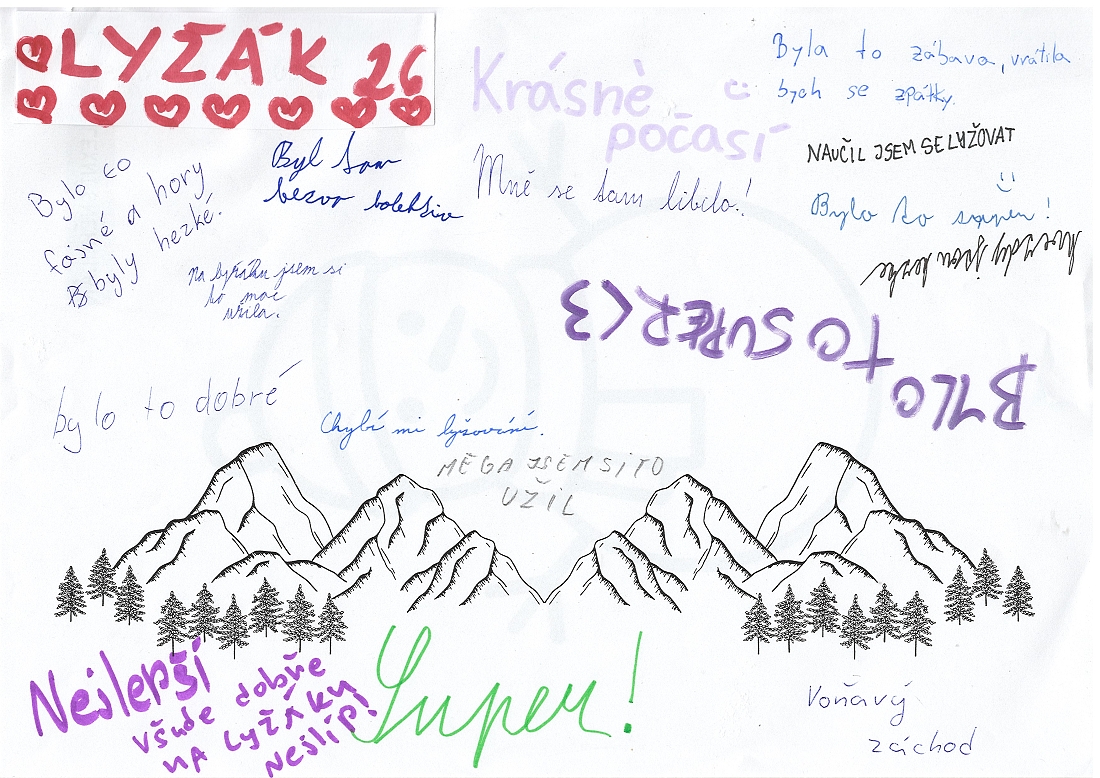 LYŽÁK 26
Krásnè
počasí
Byla to zábava, vrátila
bych se zpátky.
NAUČIL JSEM SE LYŽOVAT
Bylo to
fajné a hory
byly hezké.
Byl tam
bezva
Mně se tam líbilo!
Bylo to super!
hvezdy jsou hezke
Na lyžáku jsem si
to moc
užila.
BYLO
TO SUPER <3
bylo to dobré
Chybí mi lyžování.
MEGA JSEM SI TO
UŽIL
Nejlepší
všude dobře
NA LYŽÁKU
NEJLÍP!
Super!
Voňavý
záchod